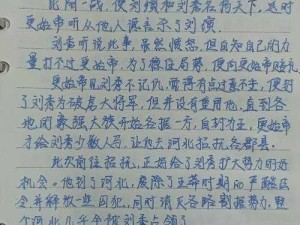 此阿一战，使刘縯和刘秀名扬天下，是时
更始帝听从他人谗言杀了刘縯
刘秀听说此事，虽然愤怒，但自知自己的力
量打不过更始帝，为了稳住局势，便向更始赔礼
更始见刘秀不记仇，觉得有点过意不去，便封
了刘秀为破虏大将军，但并没有重用他，直到各
地的豪强大族开始各据一方，自封为王，更始帝
才给刘秀少数人马，让他去河北招抚各郡县
此次前往招抚，正好给了刘秀扩大势力的好
机会。他到了河北，废除了王莽时期的严酷法
令并释放一些囚犯，同时消灭各路割据势力，整
个河北几乎全被刘秀占领了